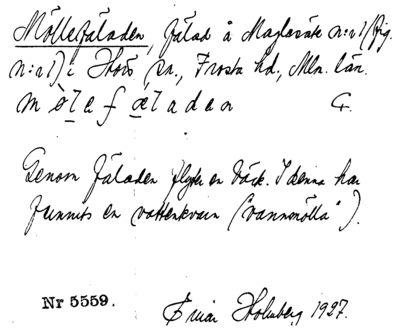 Möllefäladen, fälad å Maglasäte n:r 1 (fig.
n:r 1) i Höörs sn., Frosta hd., Mlm. län.
m ò l e f æ l a d e n G.
Genom fäladen flyter en bäck. I denna har
funnits en vattenkvarn ("vannmölla").
Nr 5559.
Einar Holmberg 1927.